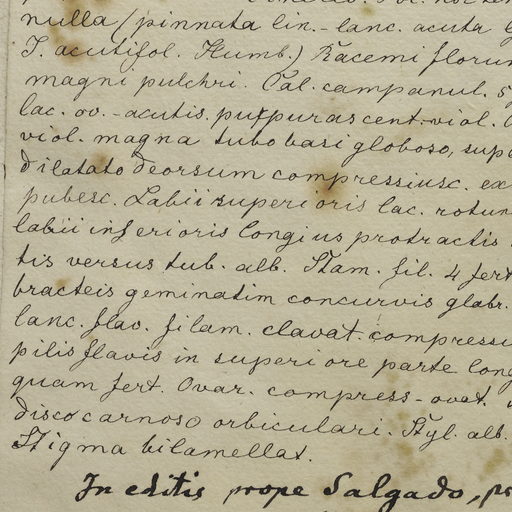 nulla (pinnata lin.-lanc. acuta
J. acutifol. Humb.) Racemi florum
magni pulchri. Cal. campanul. 5
lac. ov.-acutis. purpurascent.-viol.
viol. magna tubo basi globoso, sup
dilatato deorsum compressiusc. ex
pubesc. Labii superioris lac. rotun
labii inferioris longius protractis
tis versus tub. alb. Stam. fil. 4 fert
bracteis geminatim concurvis glabr.
lanc. flav. filam. clavat. compressu
pilis flavis in superiore parte long
quam fert. Ovar. compress-ovat.
disco carnoso orbiculari. Styl. alb.
Stigma bilamellat.
In editis prope Salgado,